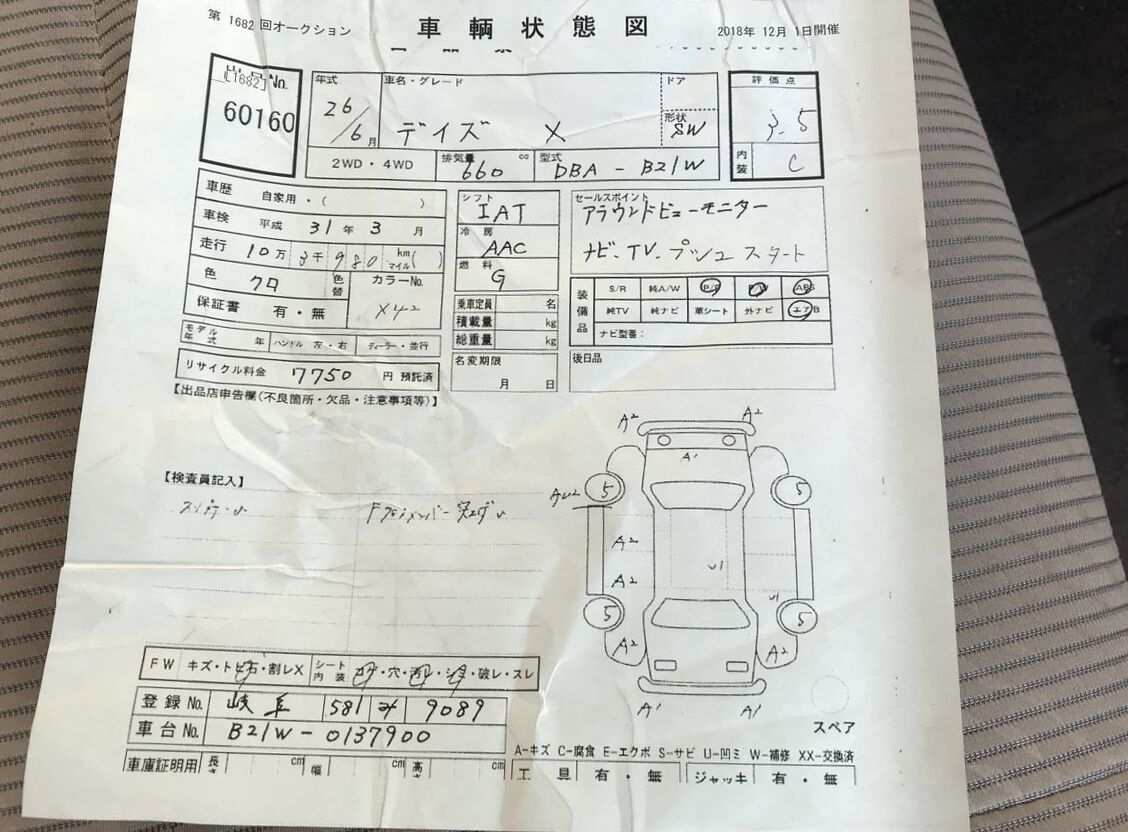 第 1682 回オークション 車輌状態図 2018年 12月 1日開催
[L1682] No.
60160
年式 車名・グレード ドア 評価点
26/6月 デイズ X 形状 SW 3.5
2WD・4WD 排気量 660 cc 型式 DBA - B21W 内装 C
車歴 自家用・( )
車検 平成 31年 3月
走行 10万3千980 km マイル( )
色 クロ 色替 カラーNo. X42
保証書 有・無
モデル年式 年 ハンドル 左・右 ディーラー・並行
リサイクル料金 7750 円 預託済
シフト IAT
冷房 AAC
燃料 G
乗車定員 名
積載量 kg
総重量 kg
名変期限 月 日
セールスポイント
アラウンドビューモニター
ナビ、TV、プッシュスタート
装備品 S/R 純A/W P/S P/W ABS
純TV 純ナビ 革シート 外ナビ エアB
ナビ型番:
後日品
【出品店申告欄(不良箇所・欠品・注意事項等)】
【検査員記入】
A2 A2
A1
5 5
AU2
A2
A2 U1
U1
5 5
A2 A2
A1 A1
スペア
FW キズ・トビ石・割レX シート内装 コゲ・穴・汚レ・シミ・破レ・スレ
登録No. 岐阜 581 み 9089
車台No. B21W-0137900
A-キズ C-腐食 E-エクボ S-サビ U-凹ミ W-補修 XX-交換済
車庫証明用 長さ cm 幅 cm 高さ cm 工具 有・無 ジャッキ 有・無